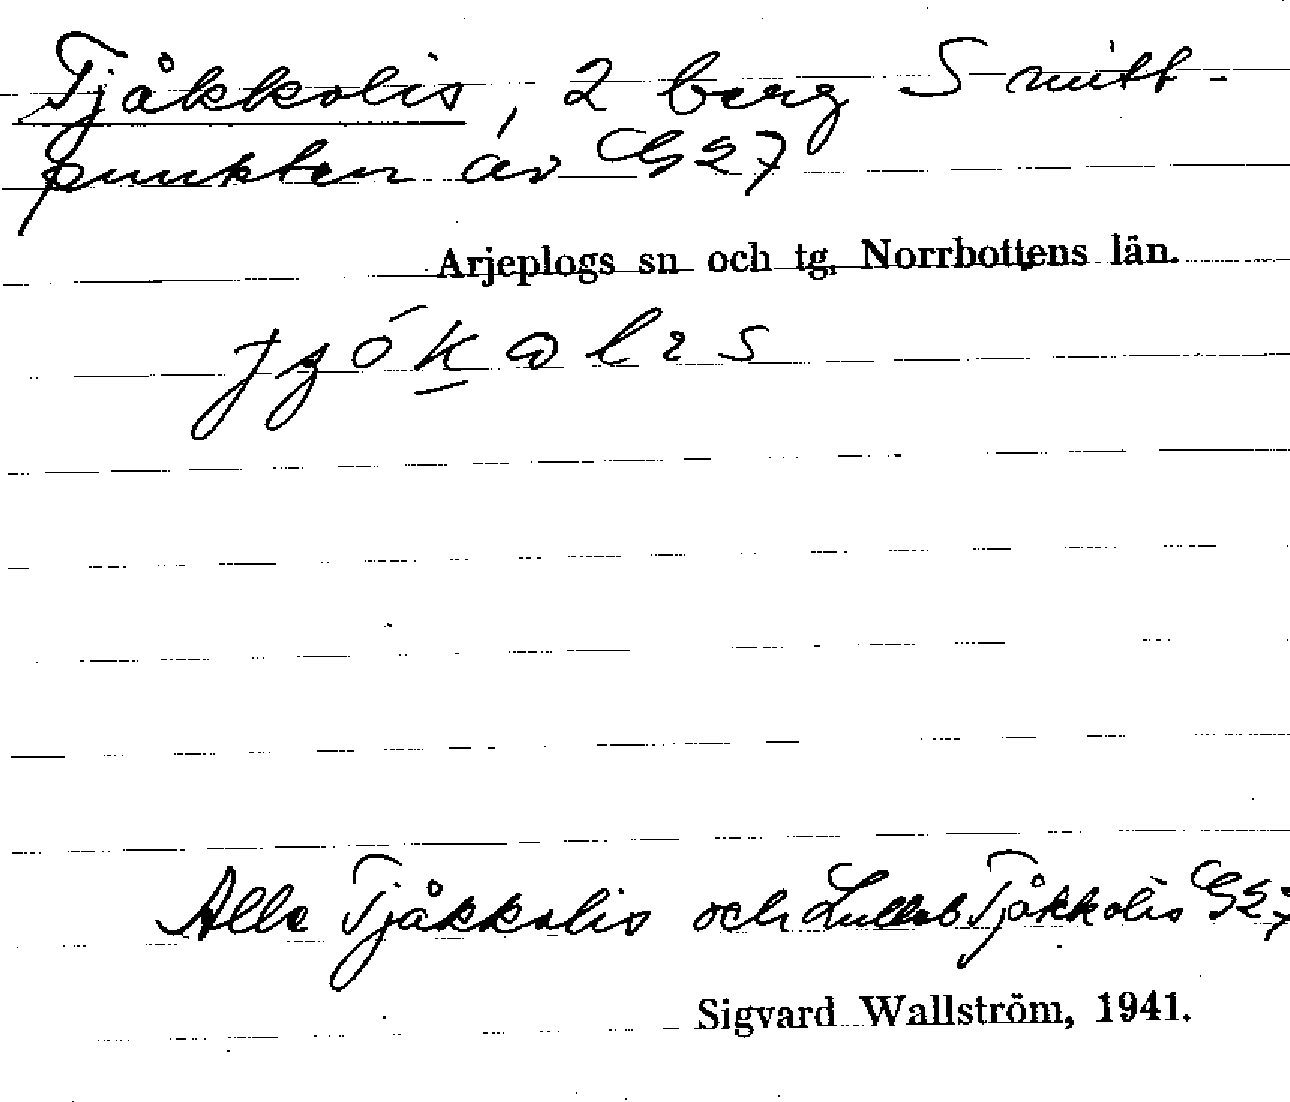 Tjåkkolis, 2 berg S mitt-
punkten av G27
Arjeplogs sn och tg. Norrbottens län.
Alle Tjåkkolis och Lulleb Tjåkkolis G27
Sigvard Wallström, 1941.